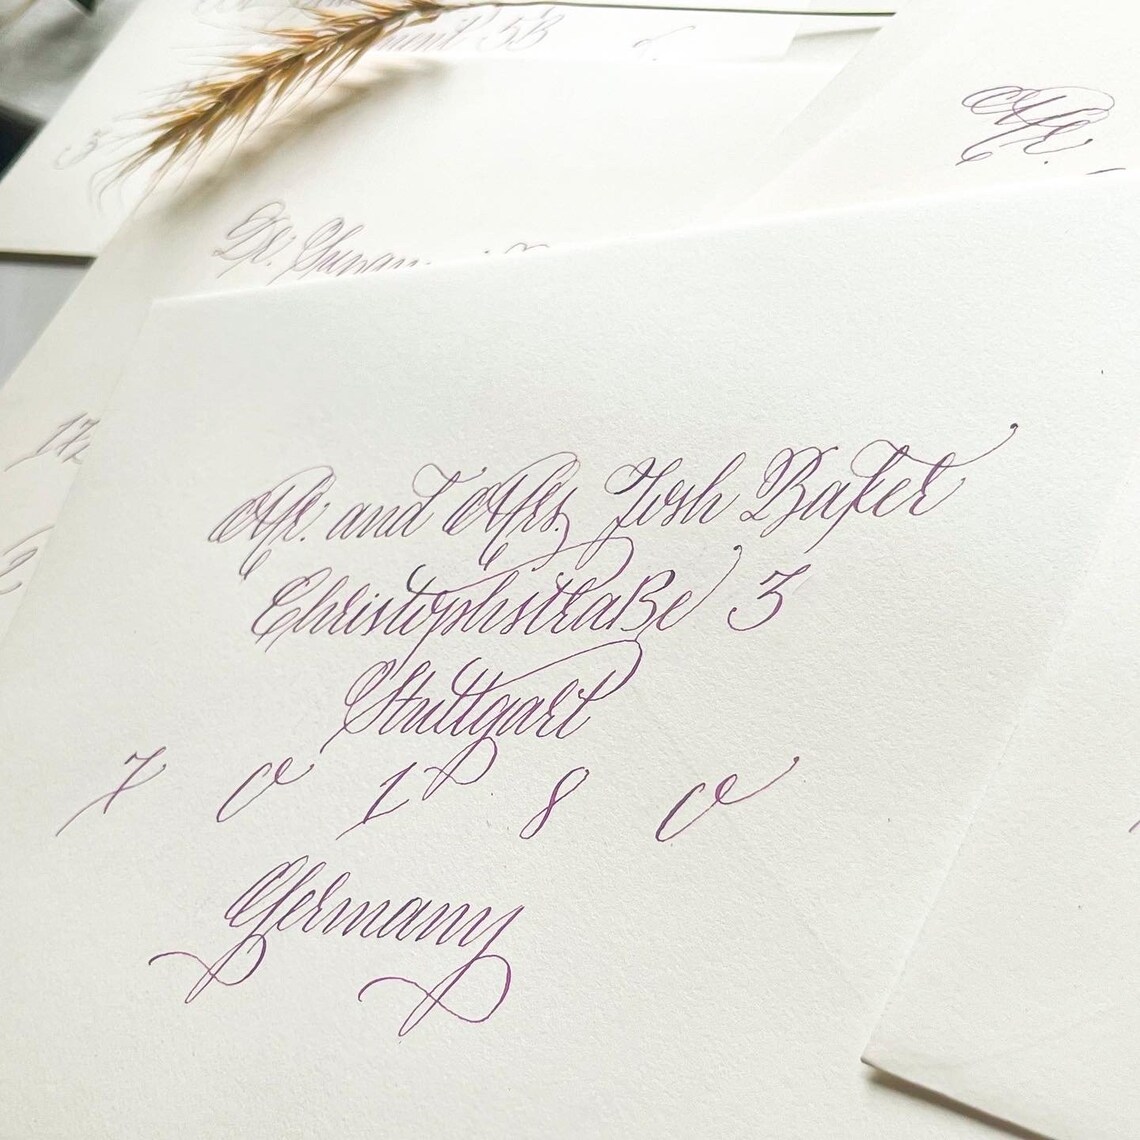 53
3
Mr.
Dr.
Mr. and Mrs. Josh Baker
Christophstraße 3
Stuttgart
7 0 1 8 0
Germany